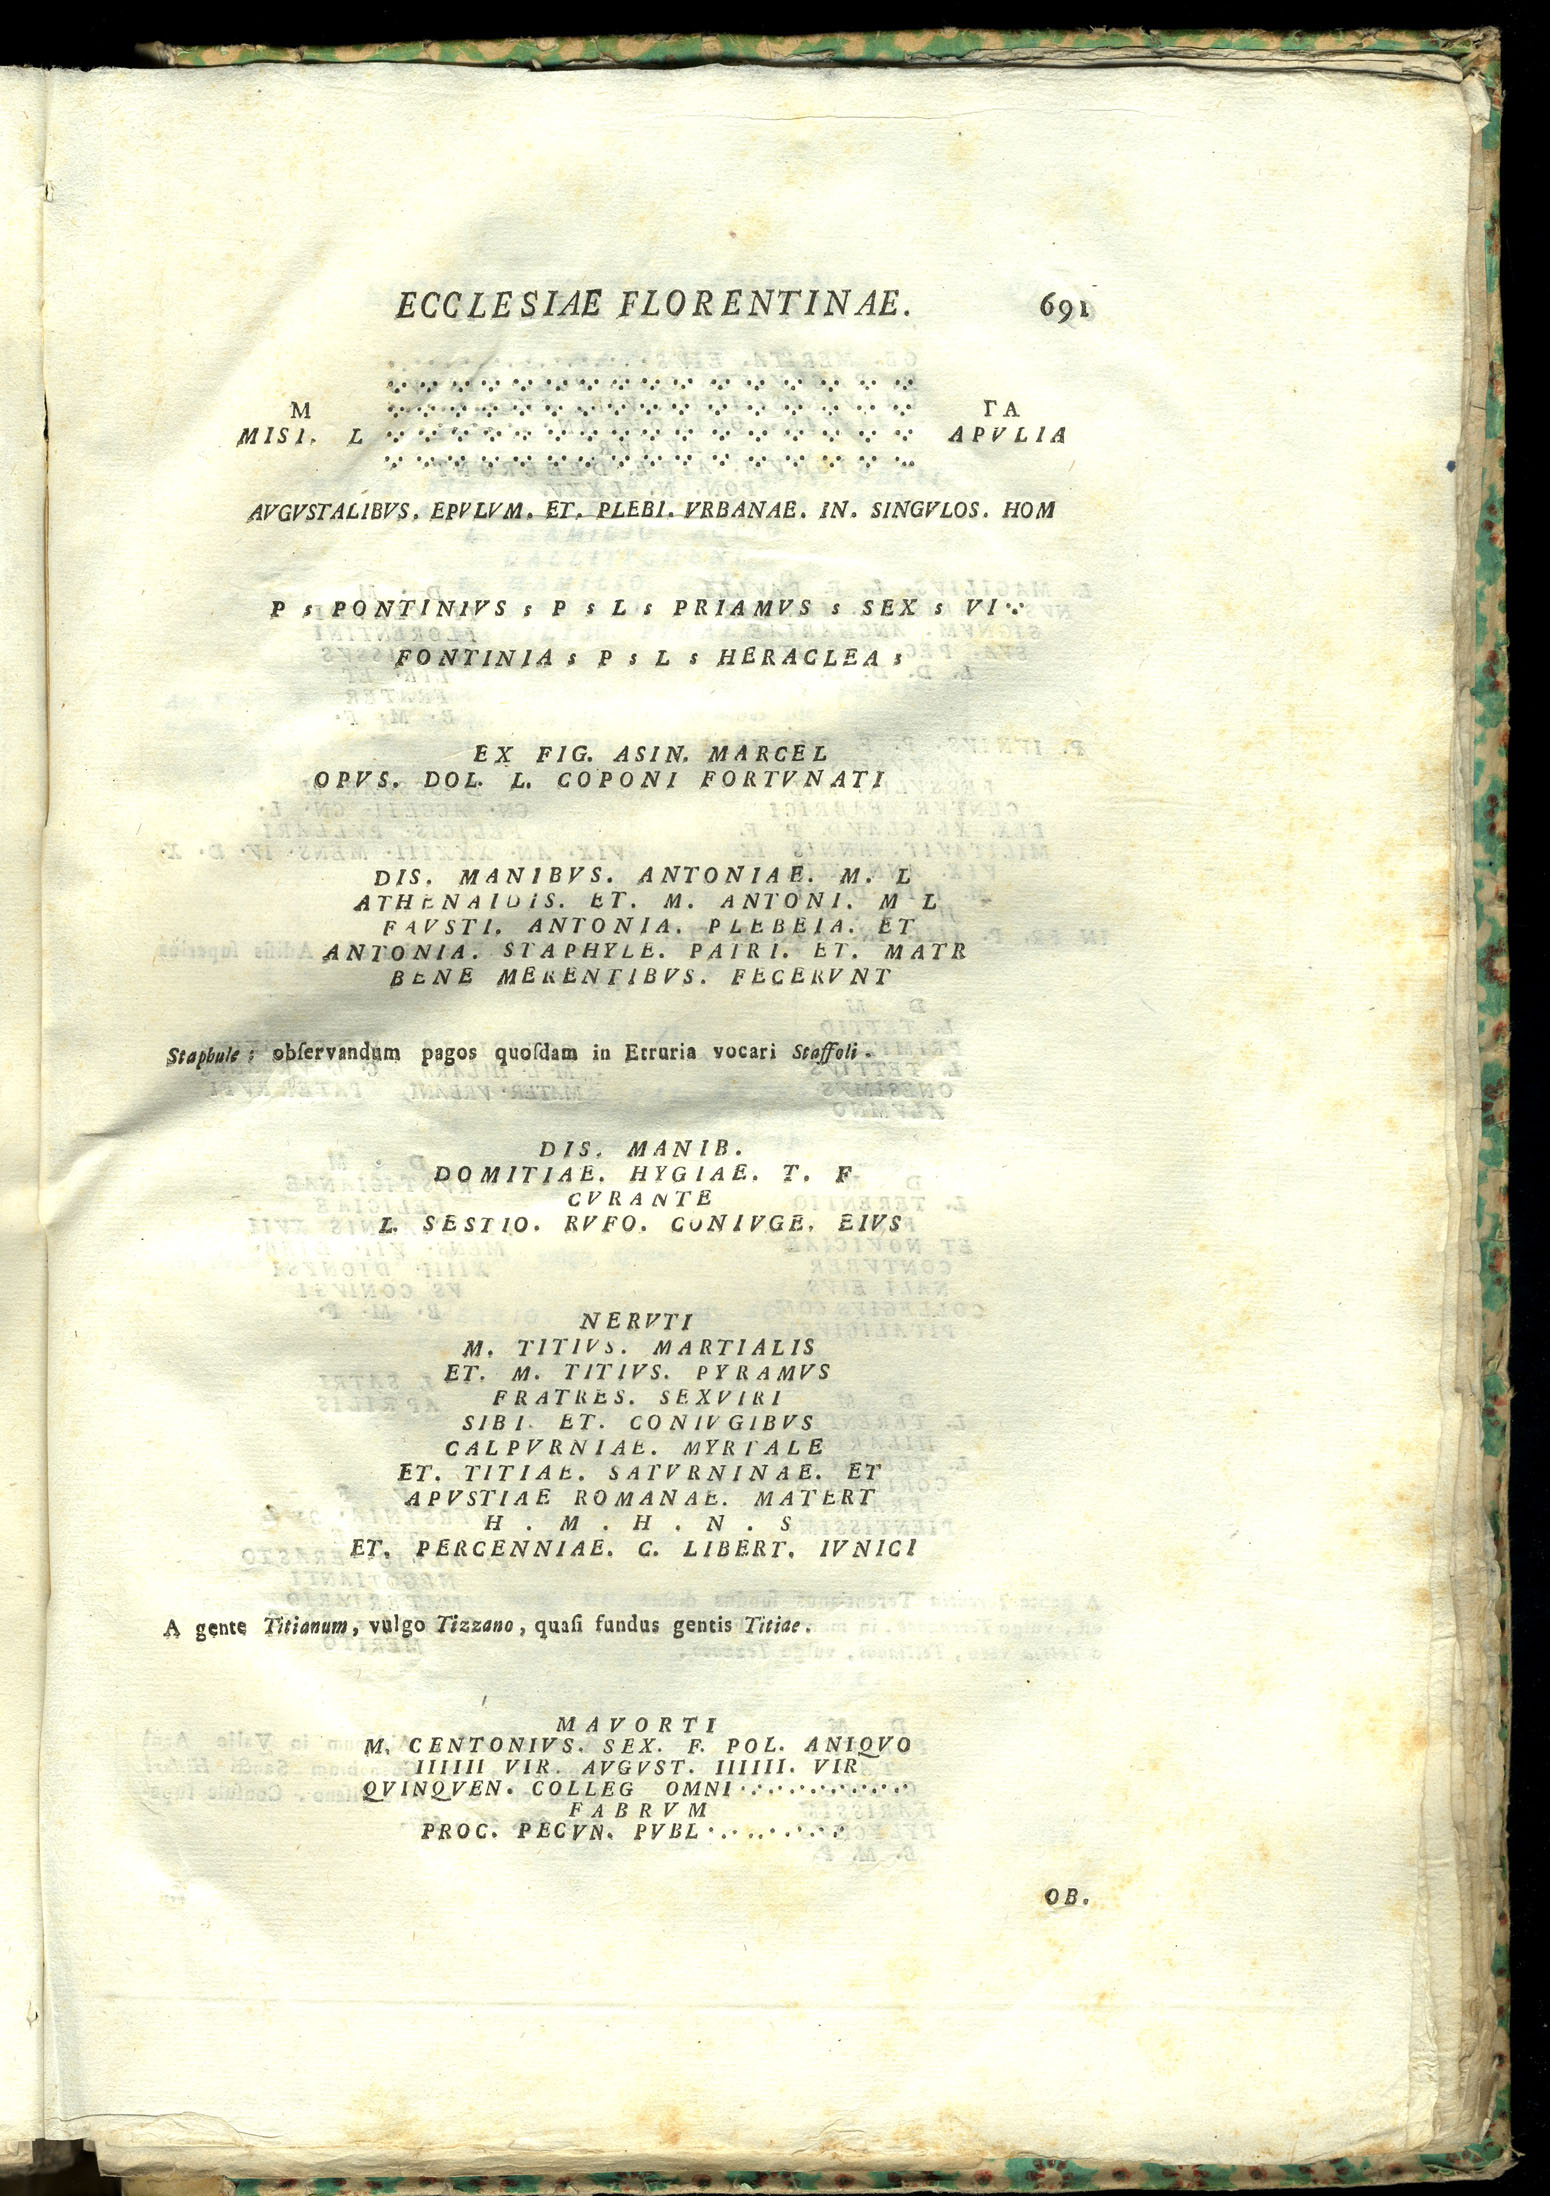 ECCLESIAE FLORENTINAE. 691
M ΓΑ
MISI. L APVLIA
AVGVSTALIBVS. EPVLVM. ET. PLEBI. VRBANAE. IN. SINGVLOS. HOM
P s PONTINIVS s P s L s PRIAMVS s SEX s VI
FONTINIA s P s L s HERACLEA s
EX FIG. ASIN. MARCEL
OPVS. DOL. L. COPONI FORTVNATI
DIS. MANIBVS. ANTONIAE. M. L
ATHENAIDIS. ET. M. ANTONI. M L
FAVSTI. ANTONIA. PLEBEIA. ET
ANTONIA. STAPHYLE. PATRI. ET. MATR
BENE MERENTIBVS. FECERVNT
Staphule: obſervandum pagos quoſdam in Etruria vocari Staffoli.
DIS. MANIB.
DOMITIAE. HYGIAE. T. F
CVRANTE
L. SESTIO. RVFO. CONIVGE. EIVS
NERVTI
M. TITIVS. MARTIALIS
ET. M. TITIVS. PYRAMVS
FRATRES. SEXVIRI
SIBI. ET. CONIVGIBVS
CALPVRNIAE. MYRTALE
ET. TITIAE. SATVRNINAE. ET
APVSTIAE ROMANAE. MATERT
H . M . H . N . S
ET. PERCENNIAE. C. LIBERT. IVNICI
A gente Titianum, vulgo Tizzano, quaſi fundus gentis Titiae.
MAVORTI
M. CENTONIVS. SEX. F. POL. ANIQVO
IIIIII VIR. AVGVST. IIIIII. VIR
QVINQVEN. COLLEG OMNI . . . . . . . . . .
FABRVM
PROC. PECVN. PVBL . . . . . . . .
OB.